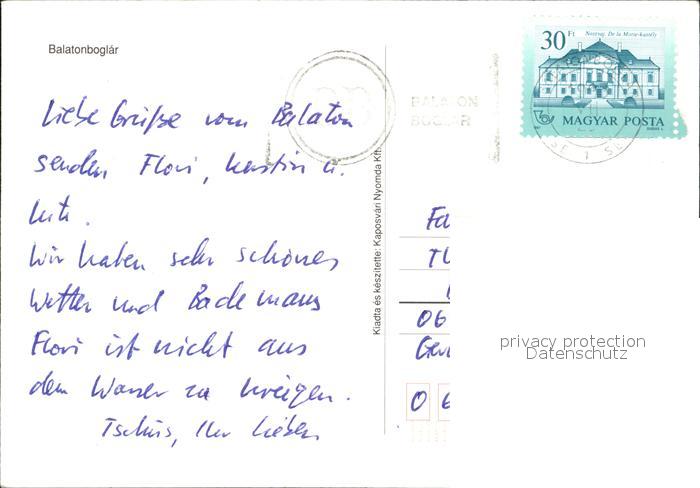 Balatonboglár
30 Ft
Noszvaj, De la Motte-kastély
MAGYAR POSTA
BALATON
BOGLÁR
Liebe Grüße vom Balaton
senden Flori, Kerstin u.
Wir haben sehr schönes
Wetter und Bademaus
Flori ist nicht aus
dem Wasser zu kriegen.
Tschüs, Ihr Lieben
Kiadta és készítette: Kaposvári Nyomda Kft.
Fa
TU
06
Ger
0 6
privacy protection
Datenschutz